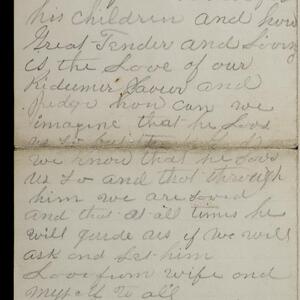 his children and how
Great Tender and Loving
is the Love of our
Ridumer Savior and
judge how can we
imagine that he Loves
us so but
we know that he Loves
us so and that through
him we are Loved
and that at all times he
will guide us if we will
ask and let him
Love from wife and
myself to all